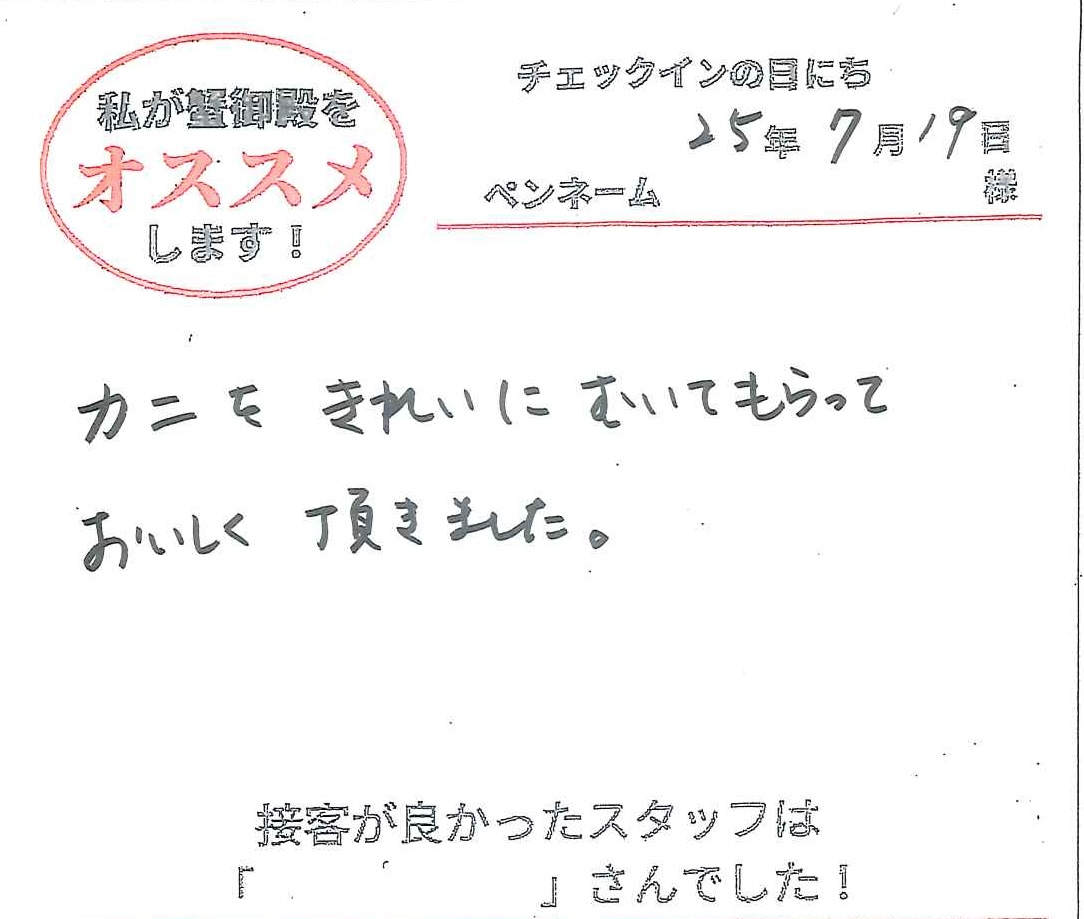 私が蟹御殿を
オススメ
します！
チェックインの日にち
25年 7月19日
ペンネーム 様
カニを きれいに むいてもらって
おいしく 頂きました。
接客が良かったスタッフは
「 」さんでした！